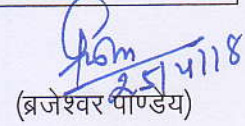 25/4/18
(ब्रजेश्वर पाण्डेय)